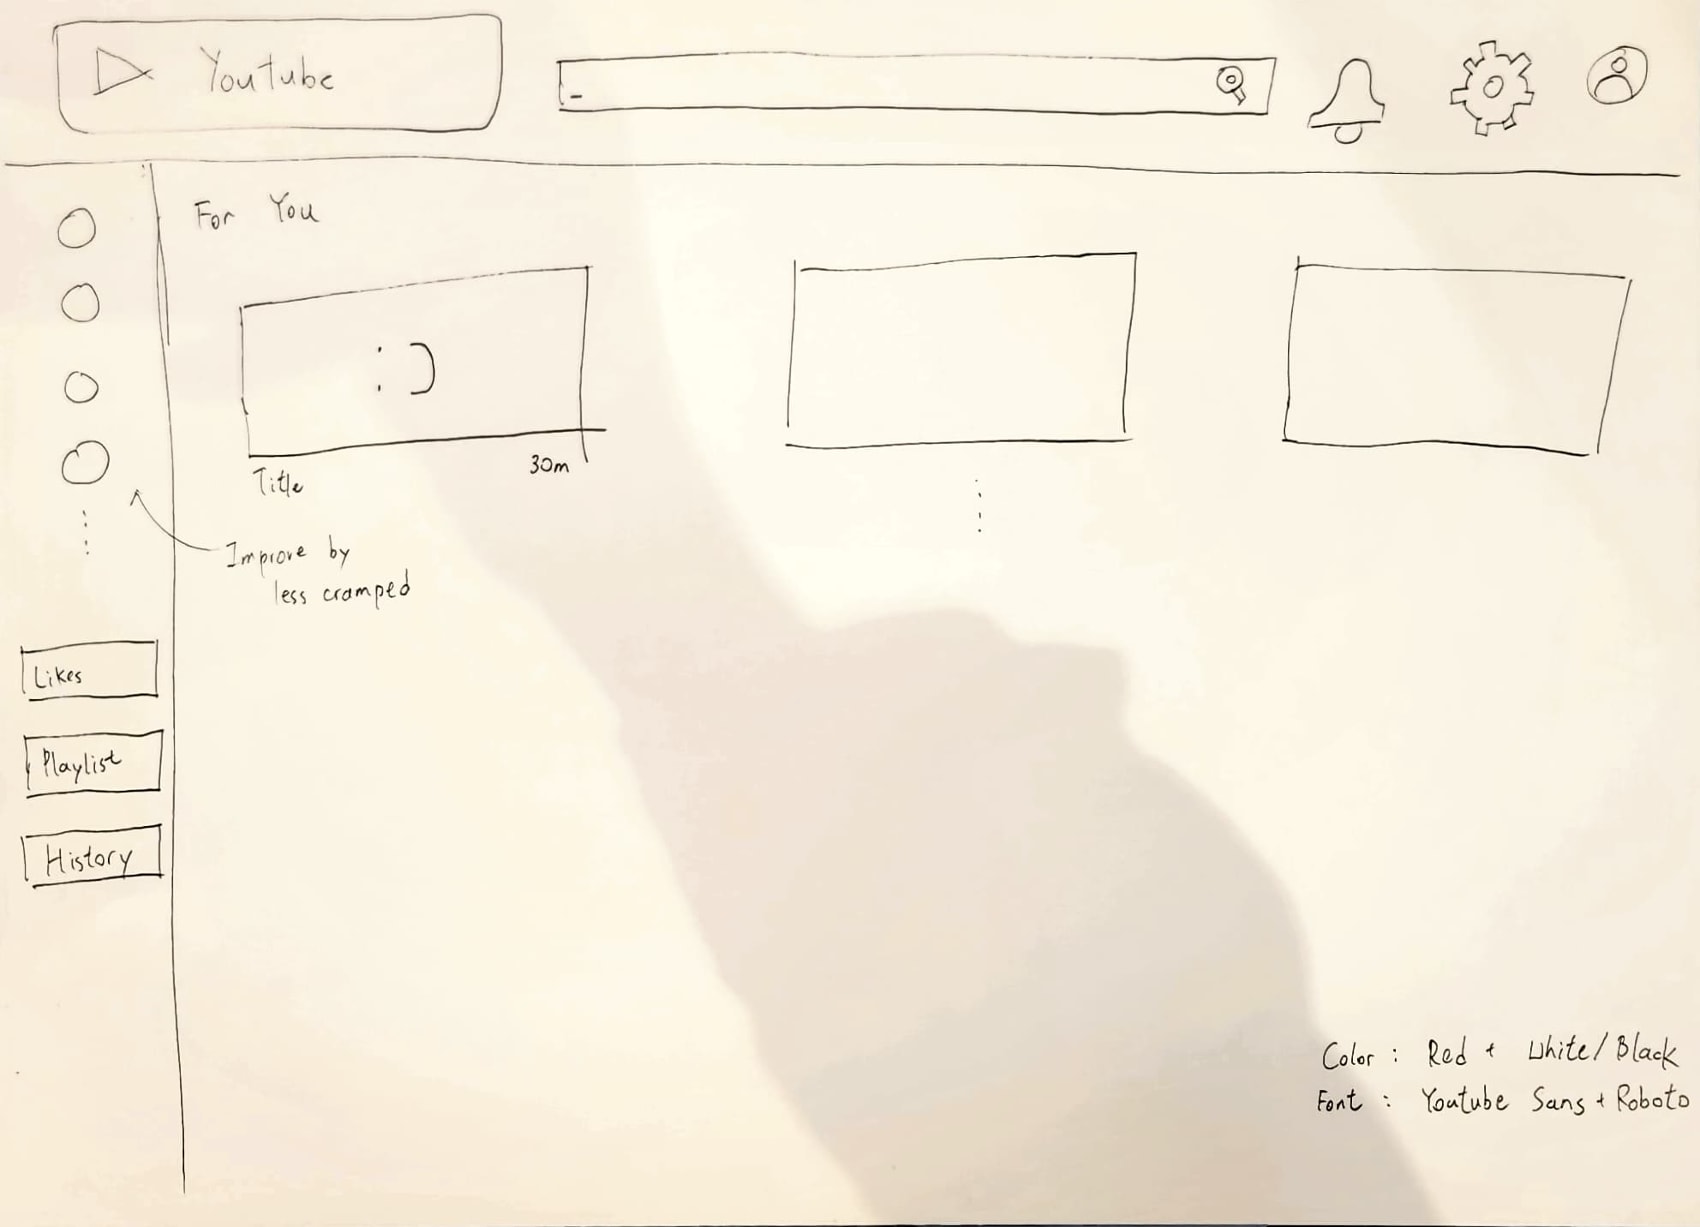 Youtube
For You
:)
Title
30m
Improve by
less cramped
Likes
Playlist
History
Color : Red + White/Black
Font : Youtube Sans + Roboto